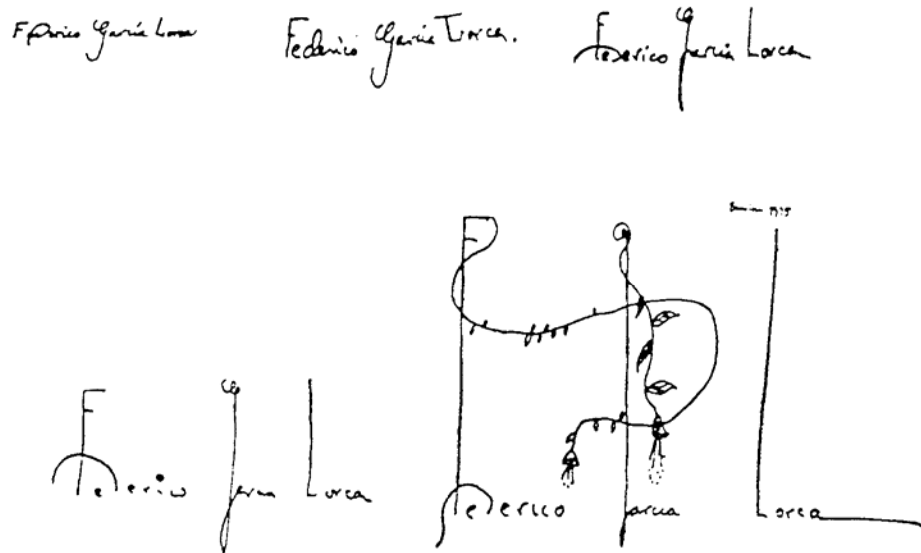 Federico García Lorca
Federico García Lorca.
Federico García Lorca
Federico García Lorca
1935
Federico García Lorca